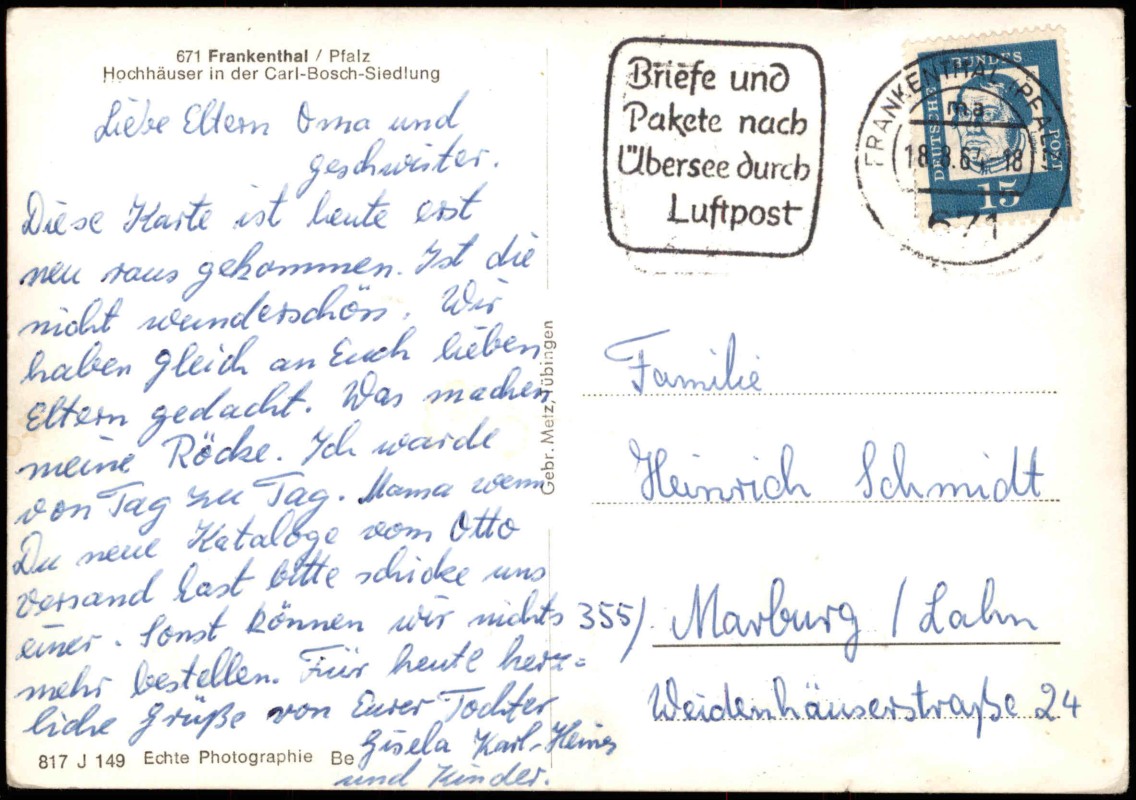 671 Frankenthal / Pfalz
Hochhäuser in der Carl-Bosch-Siedlung
Liebe Eltern Oma und
geschwister.
Diese Karte ist heute erst
neu raus gekommen. Ist die
nicht wunderschön. Wir
haben gleich an Euch lieben
Eltern gedacht. Was machen
meine Röcke. Ich warde
von Tag zu Tag. Mama wenn
Du neue Kataloge vom Otto
versand hast bitte schicke uns
einer. Sonst können wir nichts
mehr bestellen. Für heute herz=
liche Grüße von Eurer Tochter
Gisela Karl-Heinz
und Kinder.
817 J 149 Echte Photographie Be
Gebr. Metz, Tübingen
Briefe und
Pakete nach
Übersee durch
Luftpost
FRANKENTHAL (PFALZ)
ma
18.8.64 18
671
DEUTSCHE BUNDESPOST
15
Familie
Heinrich Schmidt
355/ Marburg / Lahn
Weidenhäuserstraße 24